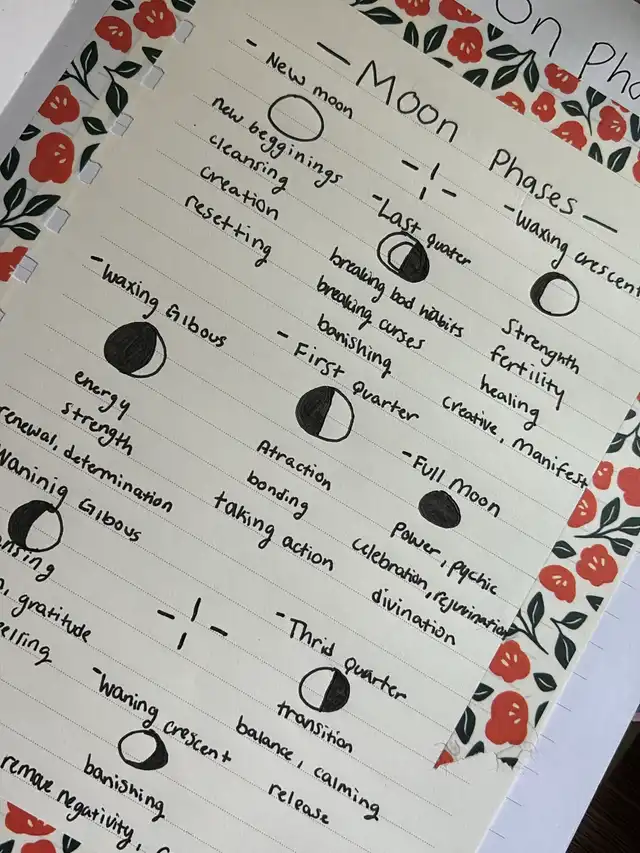 on Pha
— Moon Phases —
- New moon
new begginings
cleansing
creation
resetting
- Last quater
breaking bad habits
breaking curses
banishing
- Waxing crescent
Strenghth
fertility
healing
creative, manifest
- Waxing Gibous
energy
strength
renewal, determination
- First Quarter
Atraction
bonding
taking action
- Full Moon
Power, pychic
celebration, rejuvination
divination
Waninig Gibous
gratitude
- Thrid quarter
transition
balance, calming
release
- Waning crescent
banishing
remove negativity,